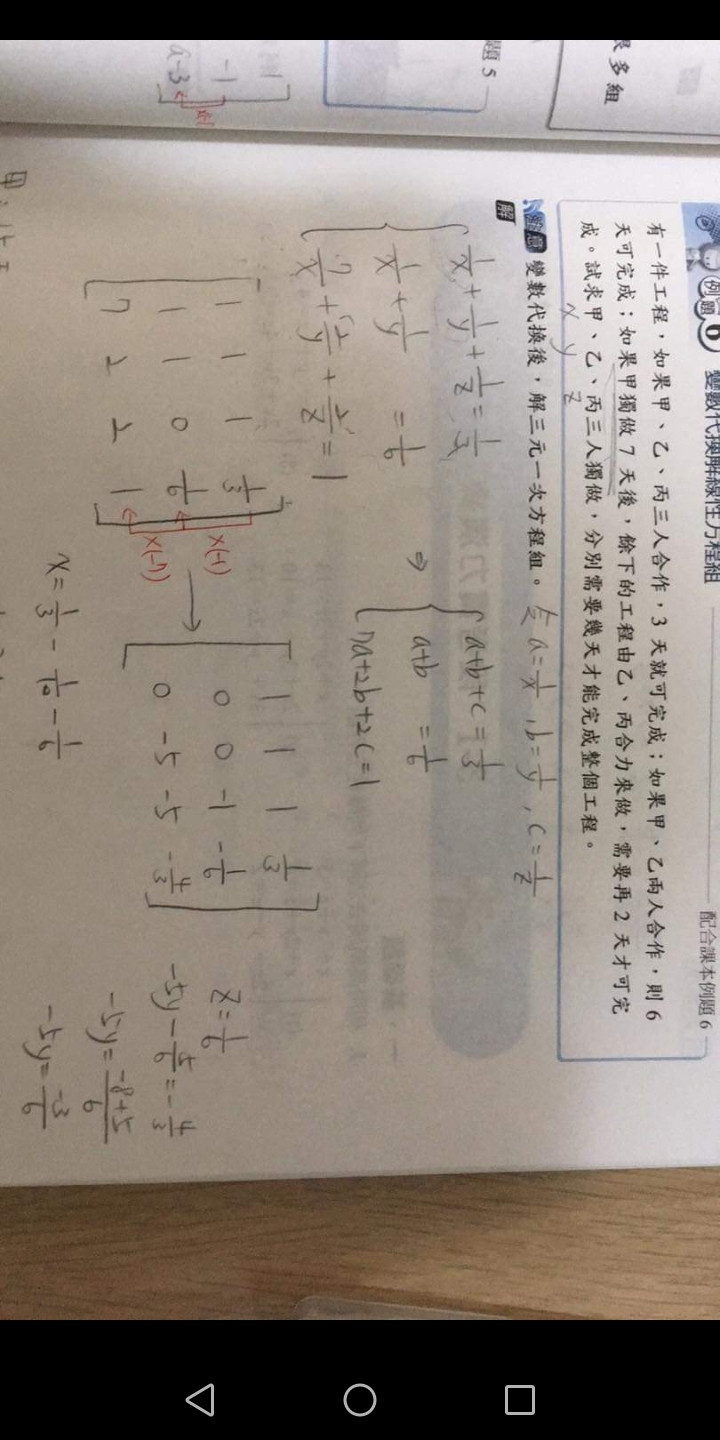 很多組
題 5
-1
a-3
例題 6 變數代換解線性方程組
配合課本例題 6
有一件工程，如果甲、乙、丙三人合作，3 天就可完成；如果甲、乙兩人合作，則 6
天可完成；如果甲獨做 7 天後，餘下的工程由乙、丙合力來做，需要再 2 天才可完
成。試求甲、乙、丙三人獨做，分別需要幾天才能完成整個工程。
x y z
變數代換後，解三元一次方程組。 令 a=1/x , b=1/y , c=1/z
解
1/x + 1/y + 1/z = 1/3
1/x + 1/y = 1/6
7/x + 2/y + 2/z = 1
⇒
a+b+c=1/3
a+b =1/6
7a+2b+2c=1
1 1 1 1/3
1 1 0 1/6
7 2 2 1
x(-1)
x(-7)
→
1 1 1 1/3
0 0 -1 -1/6
0 -5 -5 -4/3
z=1/6
-5y-5/6=-4/3
-5y=-8+5/6
-5y=-3/6
x=1/3-1/10-1/6